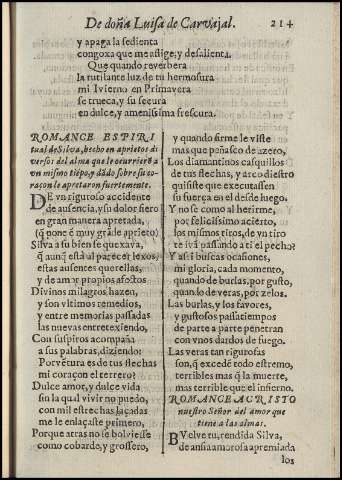 De doña Luisa de Carvajal. 214
y apaga la sedienta
congoxa que me aflige, y desalienta.
Que quando reverbera
la rutilante luz de tu hermosura
mi Ivierno en Primavera
se trueca, y su secura
en dulce, y amenissima frescura.
ROMANCE ESPIRI
tual de Silva, hecho en aprietos di
versos del alma que le ocurrierõ a
vn mismo tiẽpo, y dãdo sobre su co-
raçon le apretaron fuertemente.
DE vn riguroso accidente
de ausencia, y su dolor fiero
en gran manera apretada,
(q̃ no ne es muy grãde aprieto)
Silva a su bien se quexava,
q̃ aunq̃ está al parecer lexos,
estas ausentes querellas,
y de amor propios afectos
Divinos milagros hazen,
y son vltimos remedios,
y entre memorias passadas
las nuevas entretexiendo,
Con suspiros acompaña
a sus palabras, diziendo:
Por vẽtura es de tus flechas
mi coraçon el terrero?
Dulce amor, y dulce vida
sin la qual vivir no puedo,
con mil estrechas laçadas
me le enlaçaste primero,
Porque atras no se bolviesse
como cobarde, y grossero,
y quando firme le viste
mas que peñasco de azero,
Los diamantinos casquillos
de tus flechas, y arco diestro
quisiste que executassen
su fuerça en el desde luego.
Y no sè como al herirme,
por felicissimo acierto,
los mismos tiros, de vn tiro
te ivã passando a ti el pecho?
Y assi buscas ocasiones,
mi gloria, cada momento,
quando de burlas, por gusto,
quando de veras, por zelos.
Las burlas, y los favores,
y gustosos passatiempos
de parte a parte penetran
con vnos dardos de fuego.
Las veras tan rigurosas
son, q̃ excedẽ todo estremo,
terribles mas q̃ la muerte,
mas terrible que el infierno.
ROMANCE A CRISTO
nuestro Señor del amor que
tiene a las almas.
BVelve tu, rendida Silva,
de ansia amorosa apremiada
los